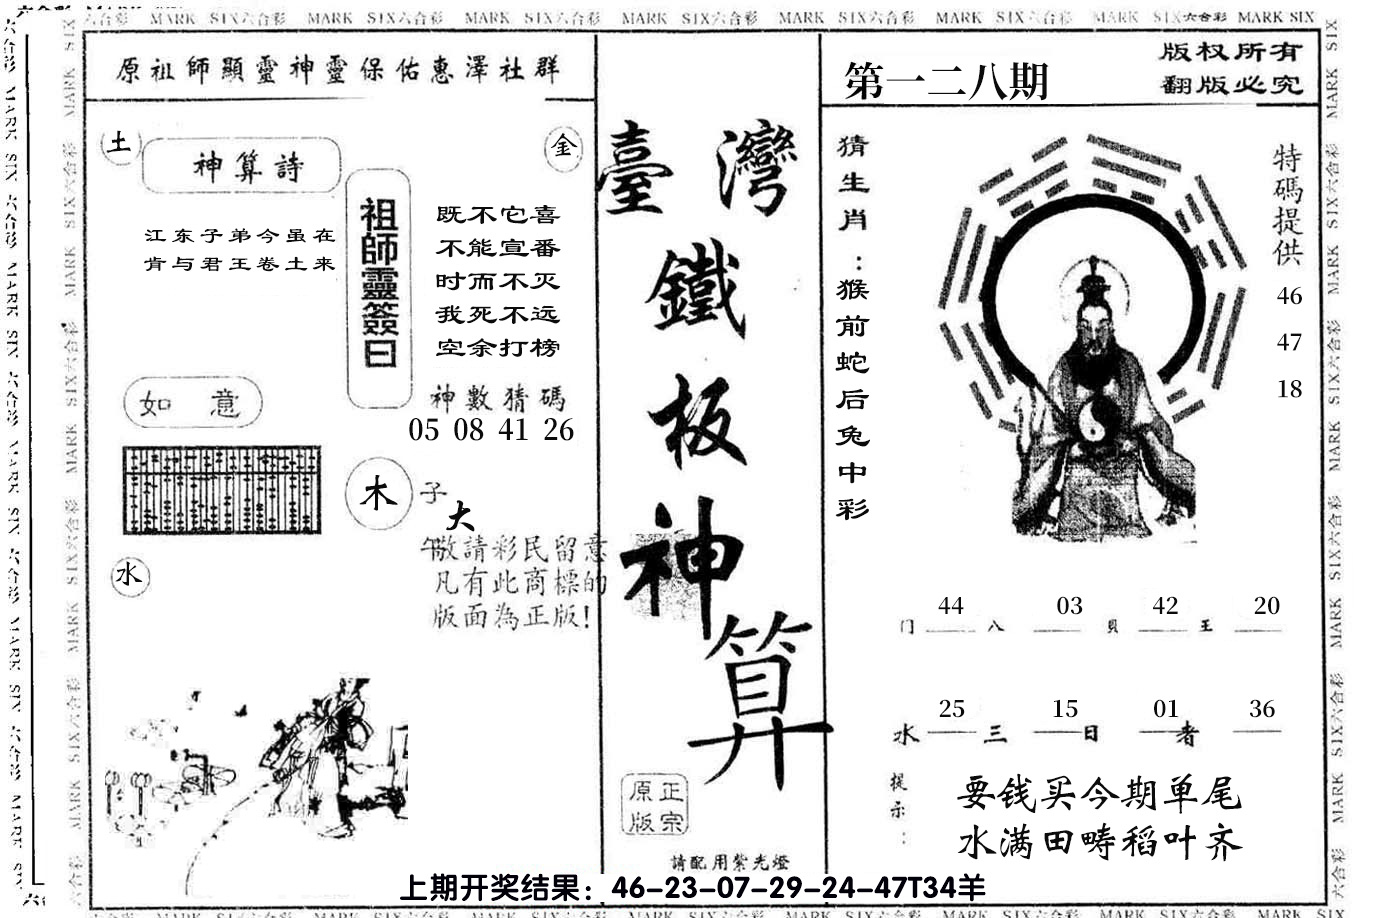 MARK SIX六合彩 MARK SIX六合彩 MARK SIX六合彩 MARK SIX六合彩 MARK SIX六合彩 MARK SIX六合彩 MARK SIX六合彩 MARK SIX六合彩 MARK SIX
原祖師顯靈神靈保佑惠澤社群
土
神算詩
金
江东子弟今虽在
肯与君王卷土来
祖師靈簽曰
既不它喜
不能宣番
时而不灭
我死不远
空余打榜
如意
神數猜碼
05 08 41 26
木
子
大
午
水
敬請彩民留意
凡有此商標的
版面為正版!
臺灣
鐵
板
神
算
正宗
原版
請配用紫光燈
第一二八期
版权所有
翻版必究
猜生肖:猴前蛇后兔中彩
特碼提供
46
47
18
44 03 42 20
门 八 貝 王
25 15 01 36
水 三 日 者
提示:
要钱买今期单尾
水满田畴稻叶齐
上期开奖结果：46-23-07-29-24-47T34羊